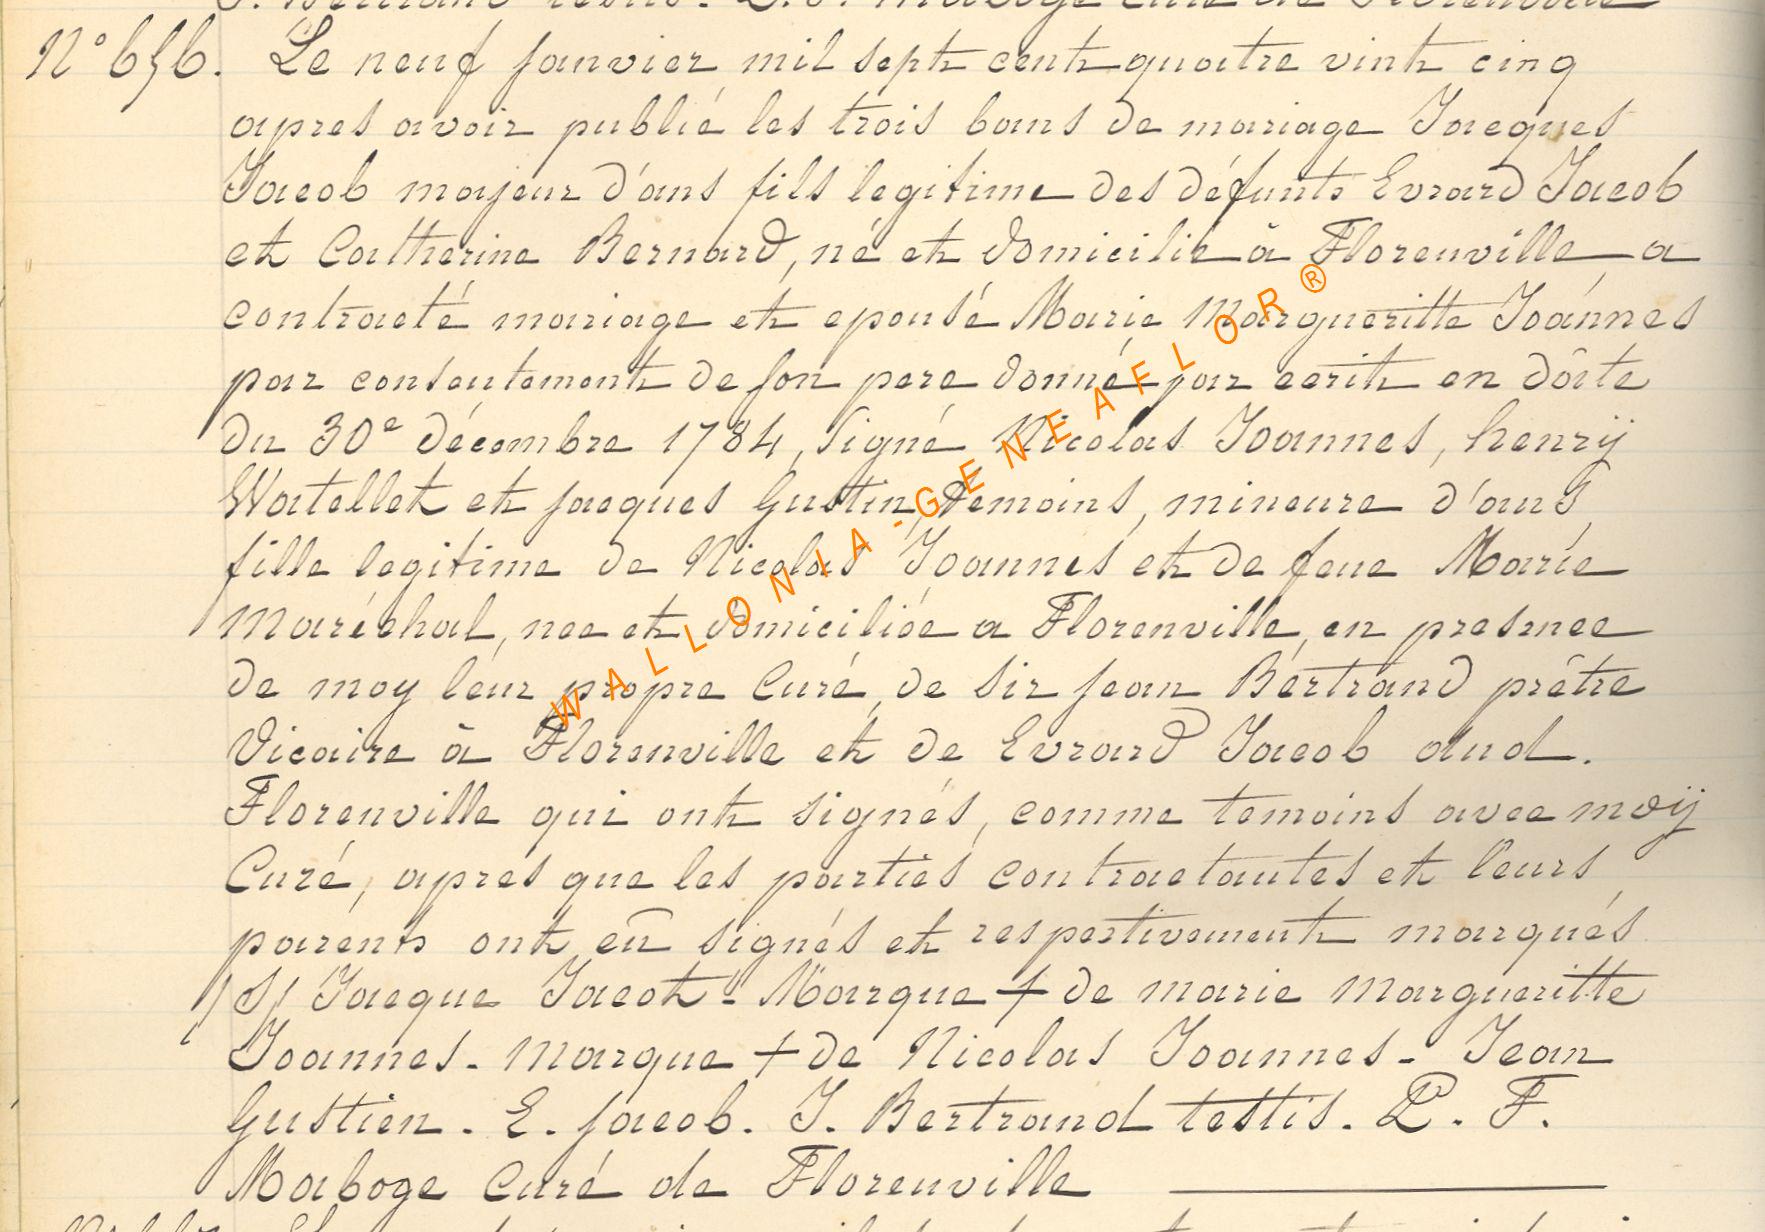 J. Bertrand testis. L. F. Maboge curé de Florenville
N° 656. Le neuf janvier mil sept cent quatre vint cinq
apres avoir publié les trois bans de mariage Jacques
Jacob majeur d'ans fils legitime des défunts Evrard Jacob
et Catherine Bernard, né et domicilie à Florenville a
contracté mariage et epousé Marie Margueritte Joannes
par consentement de son pere donné par ecrit en dâte
du 30e décembre 1784, signé Nicolas Joannes, henrij
Watellet et jacques Gustin, temoins, mineure d'ans,
fille legitime de Nicolas Joannes et de feue Marie
Maréchal, nee et domiciliée a Florenville, en presence
de moy leur propre Curé, de Sir jean Bertrand prêtre
Vicaire à Florenville et de Evrard Jacob aud.
Florenville qui ont signés, comme temoins avec moij
Curé, aprés que les parties contractantes et leurs
parents ont eû signés et respectivement marqués
/S/ Jacque Jacob - Marque + de marie Margueritte
Joannes - Marque + de Nicolas Joannes - Jean
Gustien - E. jacob. J. Bertrand testis. L. F.
Maboge Curé de Florenville
WALLONIA-GENEAFLOR®